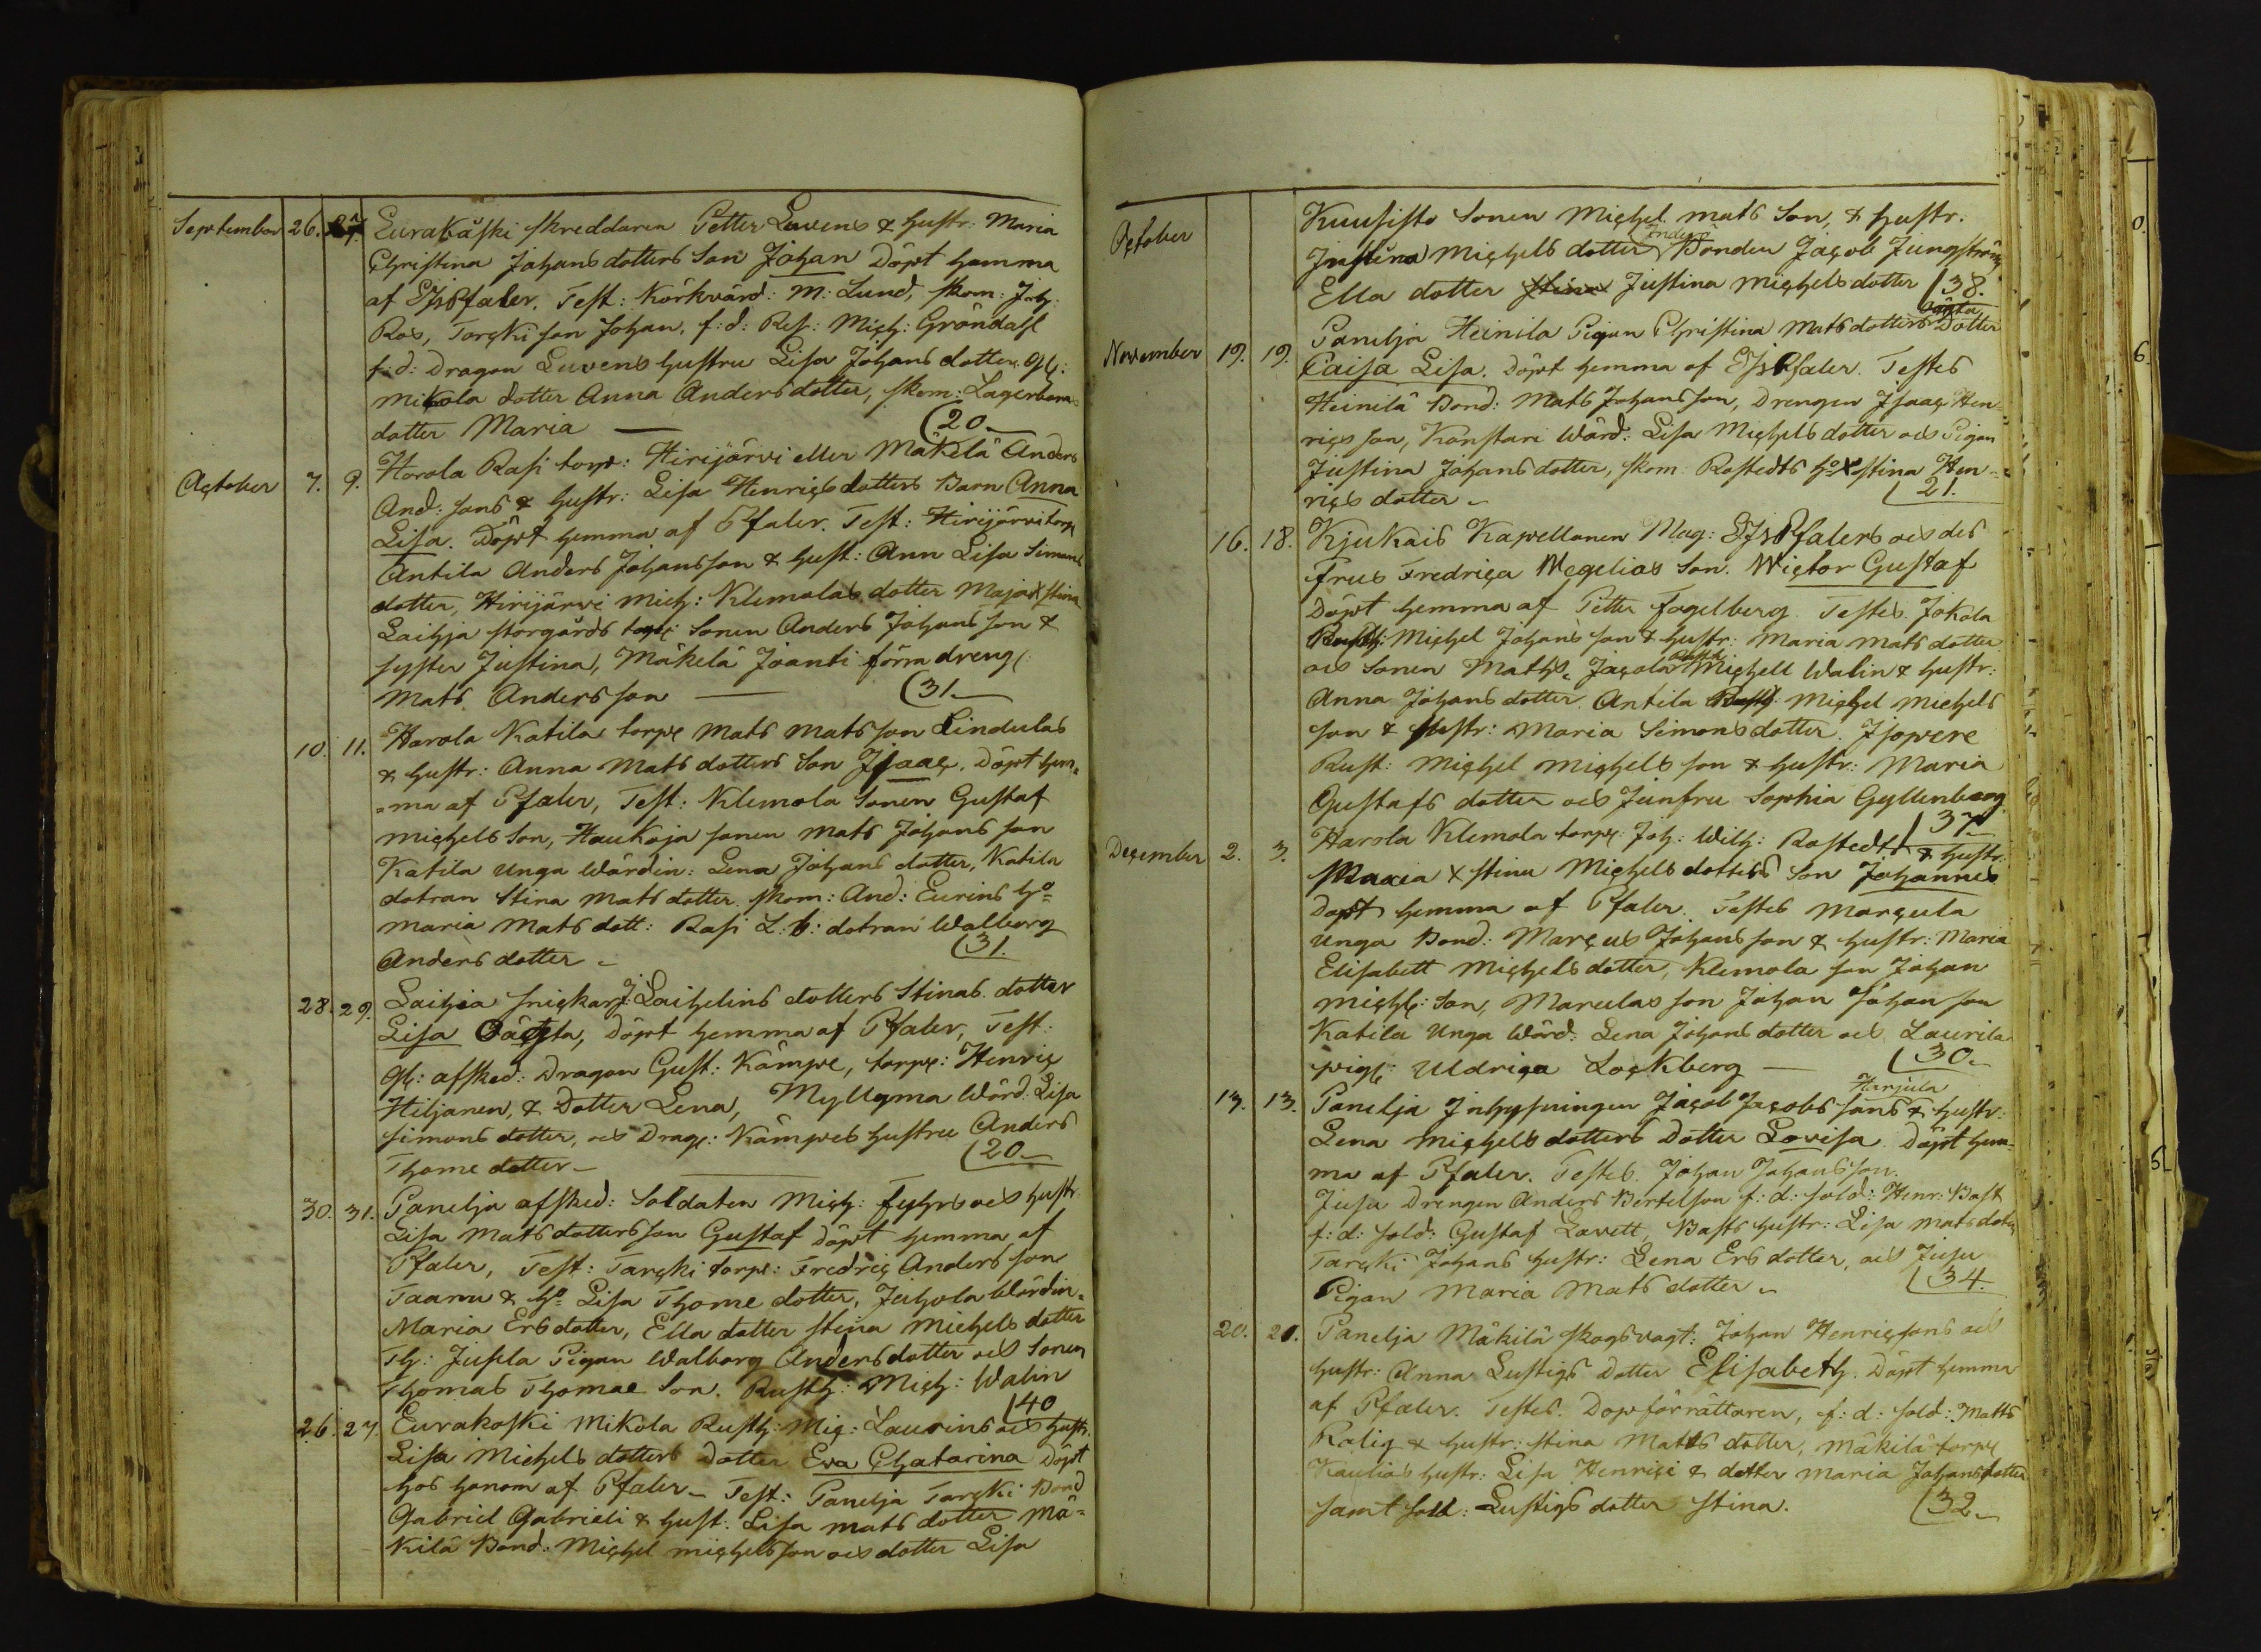 September 26. 27. Eurakåski skreddaren Petter Luvens & hustr: Maria
Christina Johansdotters Son Johan Döpt hemma
af EJsPfaler. Test: Körkvärd: M: Lund, skom: Joh:
Ros, Torcki son Johan, f: d: Ref: Mich: Gröndahl
f: d: Dragon Luvens hustru Lisa Johans dotter
Mikola dotter Anna Anders dotter, skom: Lagerboms
dotter Maria — (20.
October 7. 9. Harola Rasi torp: Hirijärvi eller Mäkelä Anders
And: sons & hustr: Lisa Henrics dotters Barn Anna
Lisa. Döpt hemma af Pfaler. Test: Hirijärvi torp
Antila Anders Johansson & hust: Ann Lisa Simons
dotter, Hirijärvi Mich: Klemolas dotter Maja Xstina
Laihja storgårds Sonen Anders Johans son &
syster Justina, Mäkelä Joanti förra dreng:
Mats Anders son — (31.
10. 11. Harola Katila torp: Mats Mats son Lindulas
& hustr: Anna Mats dotters Son Isaac. Döpt hem-
=ma af Pfaler, Test: Klemola Sonen Gustaf
Michels Son, Haukoja sonen Mats Johans son
Katila unga Wärdin: Lena Johans dotter, Katila
dotran Stina Mats dotter. skom: And: Eurins ho
Maria Mats dott: Rasi L: b: dotran Walborg
Anders dotter – (31.
28. 29. Laihia snickar J: Laihelins dotters Stinas dotter
Lisa Oächta, Döpt hemma af Pfaler, Test:
afsked: Dragon Gust: Kämpe, torp: Henric
Hiljanen, & Dotter Lena, Myllyma Wärd: Lisa
Simons dotter, och Drag: Kämpes hustru Anders
Thome dotter — (20.
30. 31. Panelja afsked: Soldaten Mich: Fyhrs och hustr:
Lisa Mats dotters son Gustaf döpt hemma af
Pfaler, Test: Tarcki torp: Fredric Anders son
Taanu & ho Lisa Thome dotter, Juhola Wärdin:
Maria Ers dotter, Ella dotter Stina Michels dotter
Th: Jusela Pigan Walborg Anders dotter och Sonen
Thomas Thomae Son. Rusth: Mich: Walin (40
26. 27. Eurakoski Mikola Rusth: Mic: Laurins och hustr:
Lisa Michels dotters Dotter Eva Chatarina Döpt
hos honom af Pfaler – Test: Panelja Tarcki Bond
Gabriel Gabrieli & hust: Lisa Mats dotter Mä-
kilä Bond: Michel Michelsson och dotter Lisa
October Kuusisto Sonen Michel Mats Son, & hustr.
Justina Michels dotter, Bonden Jacob Jungström
Ella dotter Stina Justina Michels dotter (38.
November 19. 19. Panelja Heinila Pigan Christina Mats dotters oächta Dotter
Caisa Lisa. Döpt hemma af EJsPfaler. Testes
Heinilä Bond: Mats Johans son, Drengen Isaac Hen-
rics son, Konstari Wärd: Lisa Michels dotter och Pigan
Justina Johans dotter, skom: Rostedts ho Xstina Hen-
rics dotter – (21.
16. 18. Kjukais Kapellanen Mag: EJsPfalers och des
Frus Fredrica Wegelias Son. Wictor Gustaf
Döpt hemma af Petter Fagelberg. Testes. Jokola
Rusth: Michel Johans son & hustr: Maria Mats dotter
och Sonen Maths, Jacola Rusth: Michell Walin & hustr:
Anna Johans dotter. Antila Rusth: Michel Michels
son & hustr: Maria Simons dotter. Isopere
Rust: Michel Michels son & hustr: Maria
Gustafs dotter och Junfru Sophia Gyllenberg (37.
December 2. 3. Harola Klemola torp: Joh: Wilh: Rostedts & hustr:
Maria Xstina Michels dotters Son Johannes
Döpt hemma af Pfaler. Testes Marcula
unga Bond: Marcus Johans son & hustr: Maria
Elisabett Michels dotter, Klemola son Johan
Michl: Son, Marculas son Johan Johan son
Katila unga Wärd: Lena Johans dotter och Laurila
pig: Uldrica Lockberg — (30.
13. 13. Panelja Inhysningen Jacob Jacobs sons Harjula & hustr:
Lena Michels dotters Dotter Lovisa. Döpt hem-
ma af Pfaler. Testes. Johan Johansson.
Jusa Drengen Anders Bertelson f: d: sold: Henr: Bast
f: d: sold: Gustaf Lavett, Basts hustr: Lisa Mats dotter
Tarcki Johans hustr: Lena Ers dotter, och Jusu
Pigan Maria Mats dotter – (34.
20. 21. Panelja Mäkilä skogsvagt: Johan Henricsons och
hustr: Anna Lustigs Dotter Elisabeth. Döpt hemma
af Pfaler. Testes. Dopförrättaren, f: d: sold: Matts
Rolig & hustr: Stina Matts dotter, Mäkilä torp:
Kaulias hustr: Lisa Henrici & dotter Maria Johans dotter
samt sold: Lustigs dotter Stina. (32.